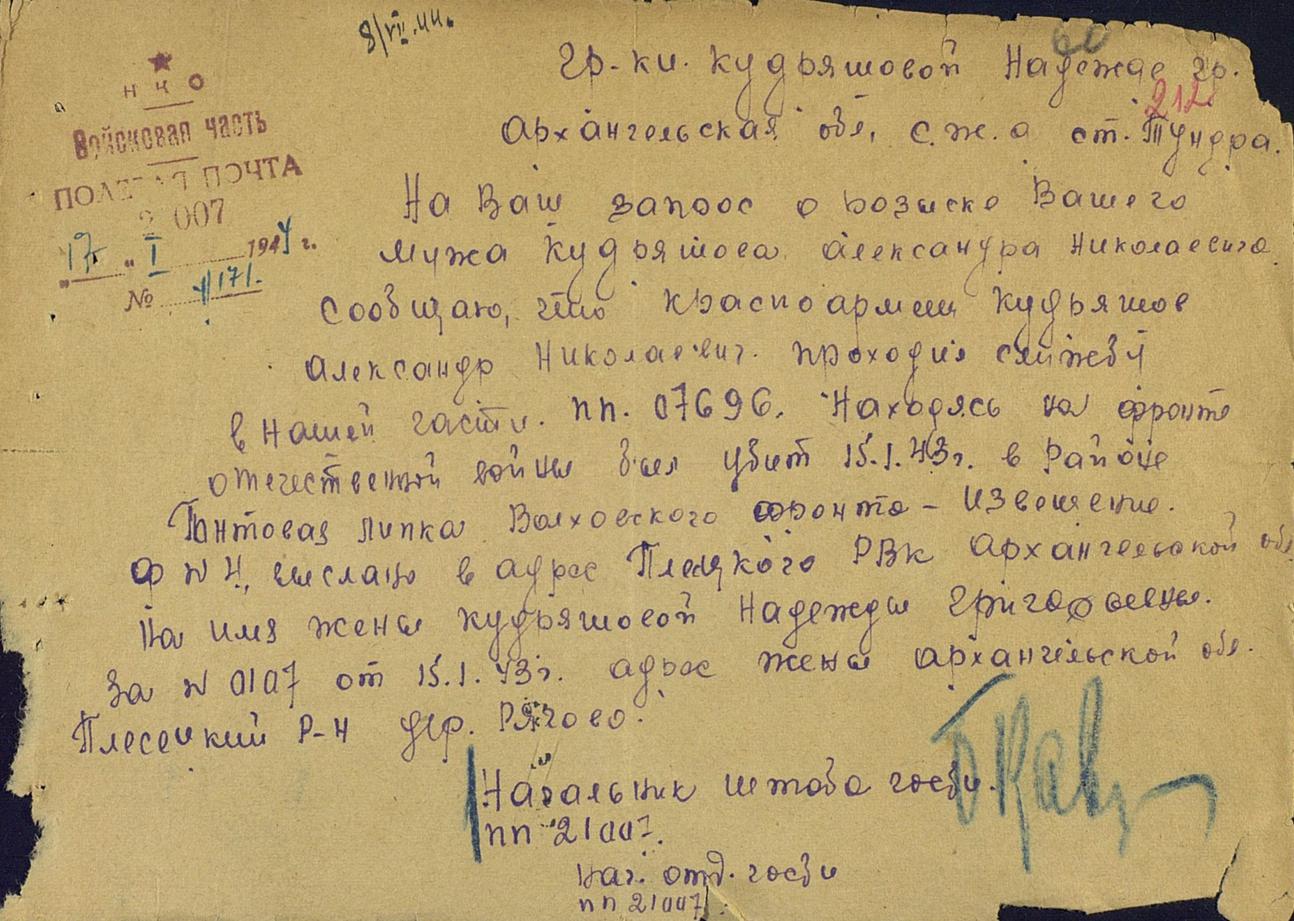 8/VII.44.
60
Гр-ки. Кудряшовой Надежде Гр.
212
Архангельская обл, с.ж.д ст. Тундра.
НКО
Войсковая часть
ПОЛЕВАЯ ПОЧТА
21007
"17" I 1944 г.
№ 4/171.
На Ваш запрос о розыске Вашего
мужа Кудряшова Александра Николаевича
сообщаю, что красноармеец Кудряшов
Александр Николаевич. проходил службу
в нашей части. пп. 07696. Находясь на фронте
отечественной войны был убит 15.1.43г. в районе
Гонтовая Липка Волховского фронта – Извещение.
Ф № 4, выслано в адрес Плесецкого РВК Архангельской обл
на имя жены Кудряшовой Надежды Григорьевны.
За № 0107 от 15.1.43г. адрес жены Архангельской обл.
Плесецкий Р-Н дер. Рягово.
Начальник штаба части.
пп 21007.
нач. отд. части
пп 21007